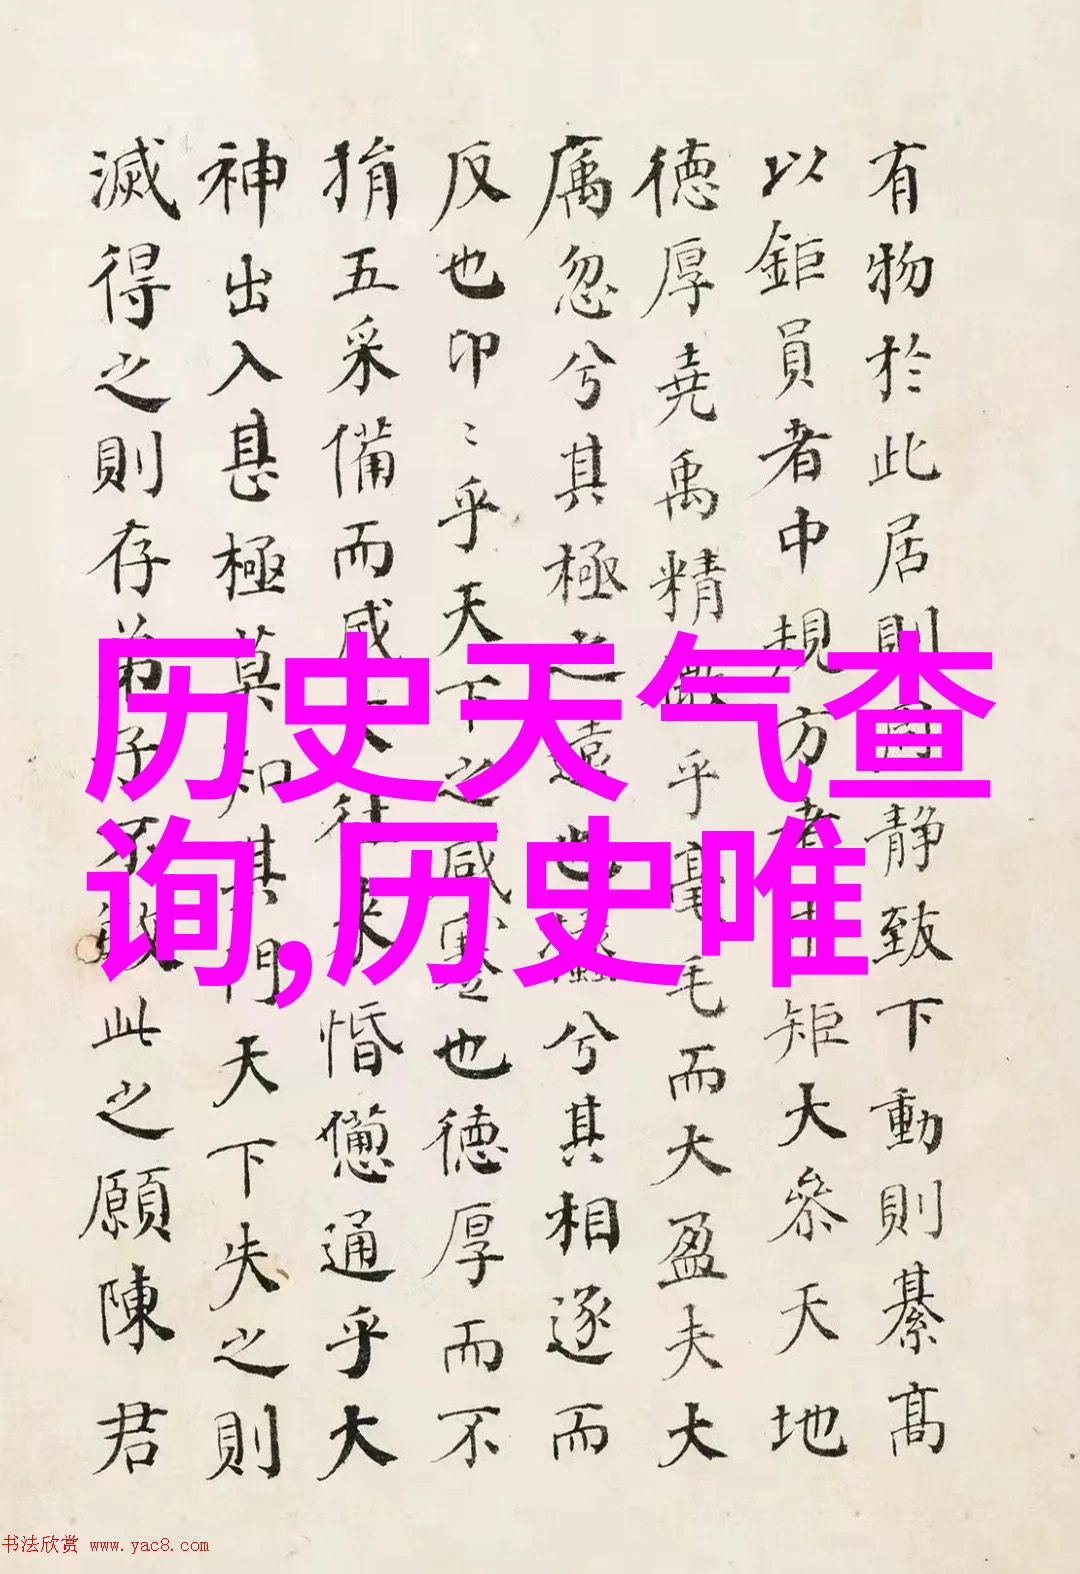 有物於此居則周静致下動則綦高
以鉅員者中規方者矩大參天地
德厚堯禹精微乎毫毛而大盈夫大
庽忽兮其極之遠也兮其相逐而
反也卬〻乎天下之咸蹇也德厚而不
捐五采備而成大往来惛憊通乎大
神出入甚極莫知其門天下失之則
滅得之則存弟子不敏此之願陳君
历史天气查
询,历史唯
书法欣赏 www.yac8.com